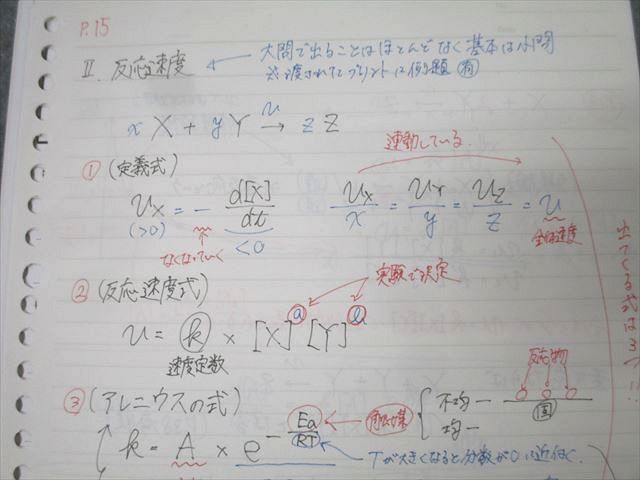 P.15
II. 反応速度 ← 大問で出ることはほとんどなく基本は小問
式渡されてプリントに例題 有
xX + yY →v zZ
① (定義式)
連動している.
υx = - d[X]/dt
υx/x = υY/y = υZ/z = υ
(>0)
<0
なくなっていく
全体速度
出てくる式は3つ!!
② (反応速度式)
実験で決定
υ = k × [X]^a [Y]^b
速度定数
反応物
③ (アレニウスの式)
不均一
固
均一
k = A × e^-Ea/RT
Tが大きくなると分数が0に近付く.